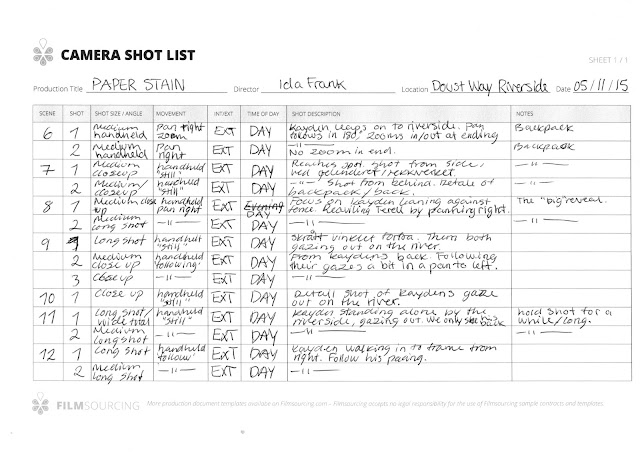 CAMERA SHOT LIST
SHEET 1 / 1
Production Title PAPER STAIN Director Ida Frank Location Doust Way Riverside Date 05/11/15
SCENE SHOT SHOT SIZE / ANGLE MOVEMENT INT/EXT TIME OF DAY SHOT DESCRIPTION NOTES
6 1 Medium handheld Pan right zoom EXT DAY Kayden leaps on to riverside. Pan follows in 180, zooms in/out at ending Backpack
2 Medium handheld Pan right EXT DAY —"— No zoom in end. Backpack
7 1 Medium closeup handheld "still" EXT DAY Reaches spot. Shot from side, ved gelenderet/rekkverket. —"—
2 Medium/ closeup handheld "still" EXT DAY —"— Shot from behind. Detale of backpack/back. —"—
8 1 Medium close up handheld pan right EXT Evening DAY Focus on Kayden leaning against fence. Recailing Terell by planning right. The "big reveal.
2 Medium long shot —"— EXT DAY —"— —"—
9 1 Long shot handheld "still" EXT DAY skrått vinklet forfra. Them both gazing out on the river.
2 Medium close up handheld following' EXT DAY From Kaydens back. Following their gazes a bit in a pan to left.
3 Close up —"— EXT DAY —"—
10 1 Close up handheld "still" EXT DAY Detail shot of Kaydens gaze out on the river.
11 1 Long shot/ handheld "still" EXT DAY Kayden standing alone by the riverside, gazing out. We only see his back hold shot for a while/long.
2 Medium longshot —"— EXT DAY —"— —"—
12 1 Long shot handheld follow' EXT DAY Kayden walking in to frame from right. Follow his pacing.
2 Medium long shot —"— EXT DAY —"—
FILMSOURCING More production document templates available on Filmsourcing.com – Filmsourcing accepts no legal responsibility for the use of Filmsourcing sample contracts and templates.